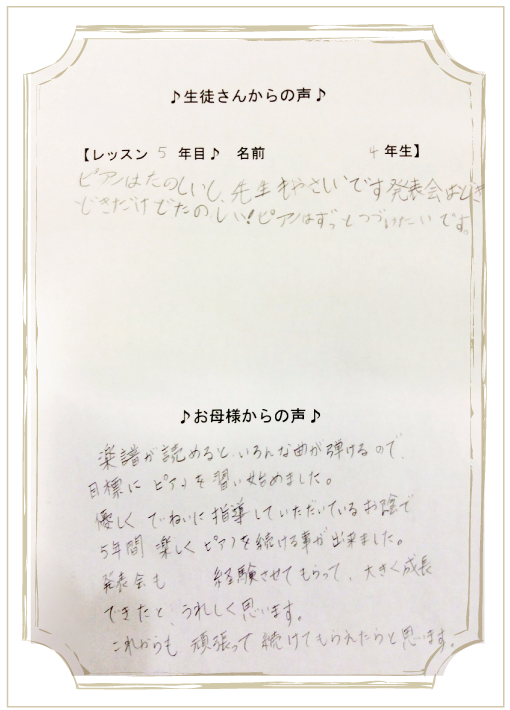 ♪生徒さんからの声♪
【レッスン 5 年目♪ 名前 4 年生】
ピアノはたのしいし、先生もやさしいです発表会はどき
どきだけどたのしい!ピアノはずっとつづけたいです。
♪お母様からの声♪
楽譜が読めるといろんな曲が弾けるので、
目標にピアノを習い始めました。
優しくていねいに指導していただいているお陰で
5年間 楽しくピアノを続ける事が出来ました。
発表会も 経験させてもらって、大きく成長
できたと、うれしく思います。
これからも 頑張って続けてもられたらと思います。